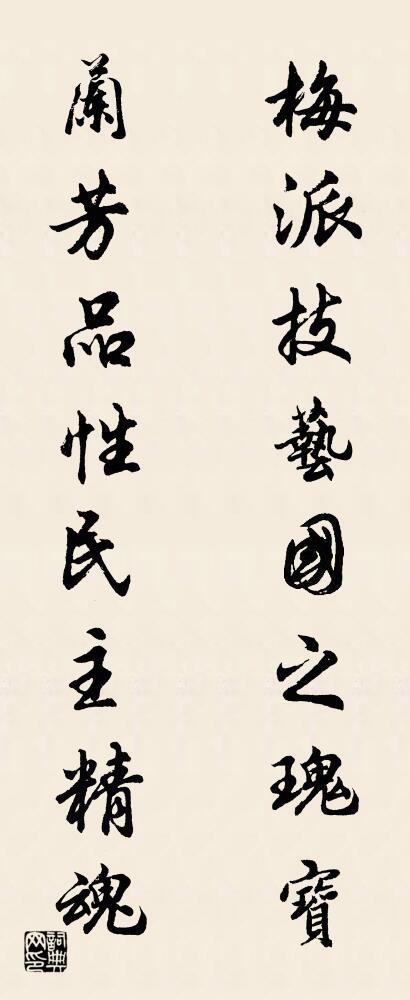 梅派技藝國之瑰寶
蘭芳品性民主精魂
詞典網印